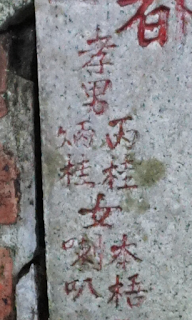 孝男
丙桂
炳桂
女
木梧
喇叭